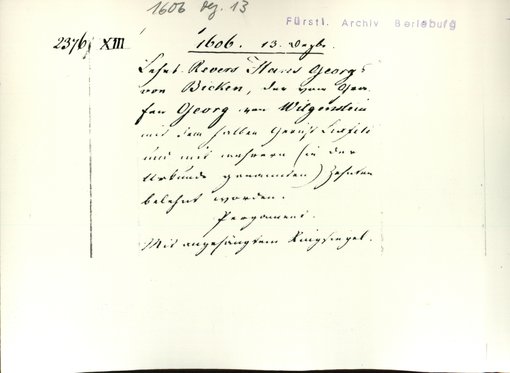 1606 Dez. 13
Fürstl. Archiv Berleburg
2376 XIII
1606. 13. Dezbr.
Lehns-Revers Hans Georgs
von Bicken, der vom Gra-
fen Georg von Witgenstein
mit dem halben Gericht
und mit mehrern (in der
Urkunde genannten) Zehnten
belehnt worden.
Pergament.
Mit angehängtem Ringsiegel.